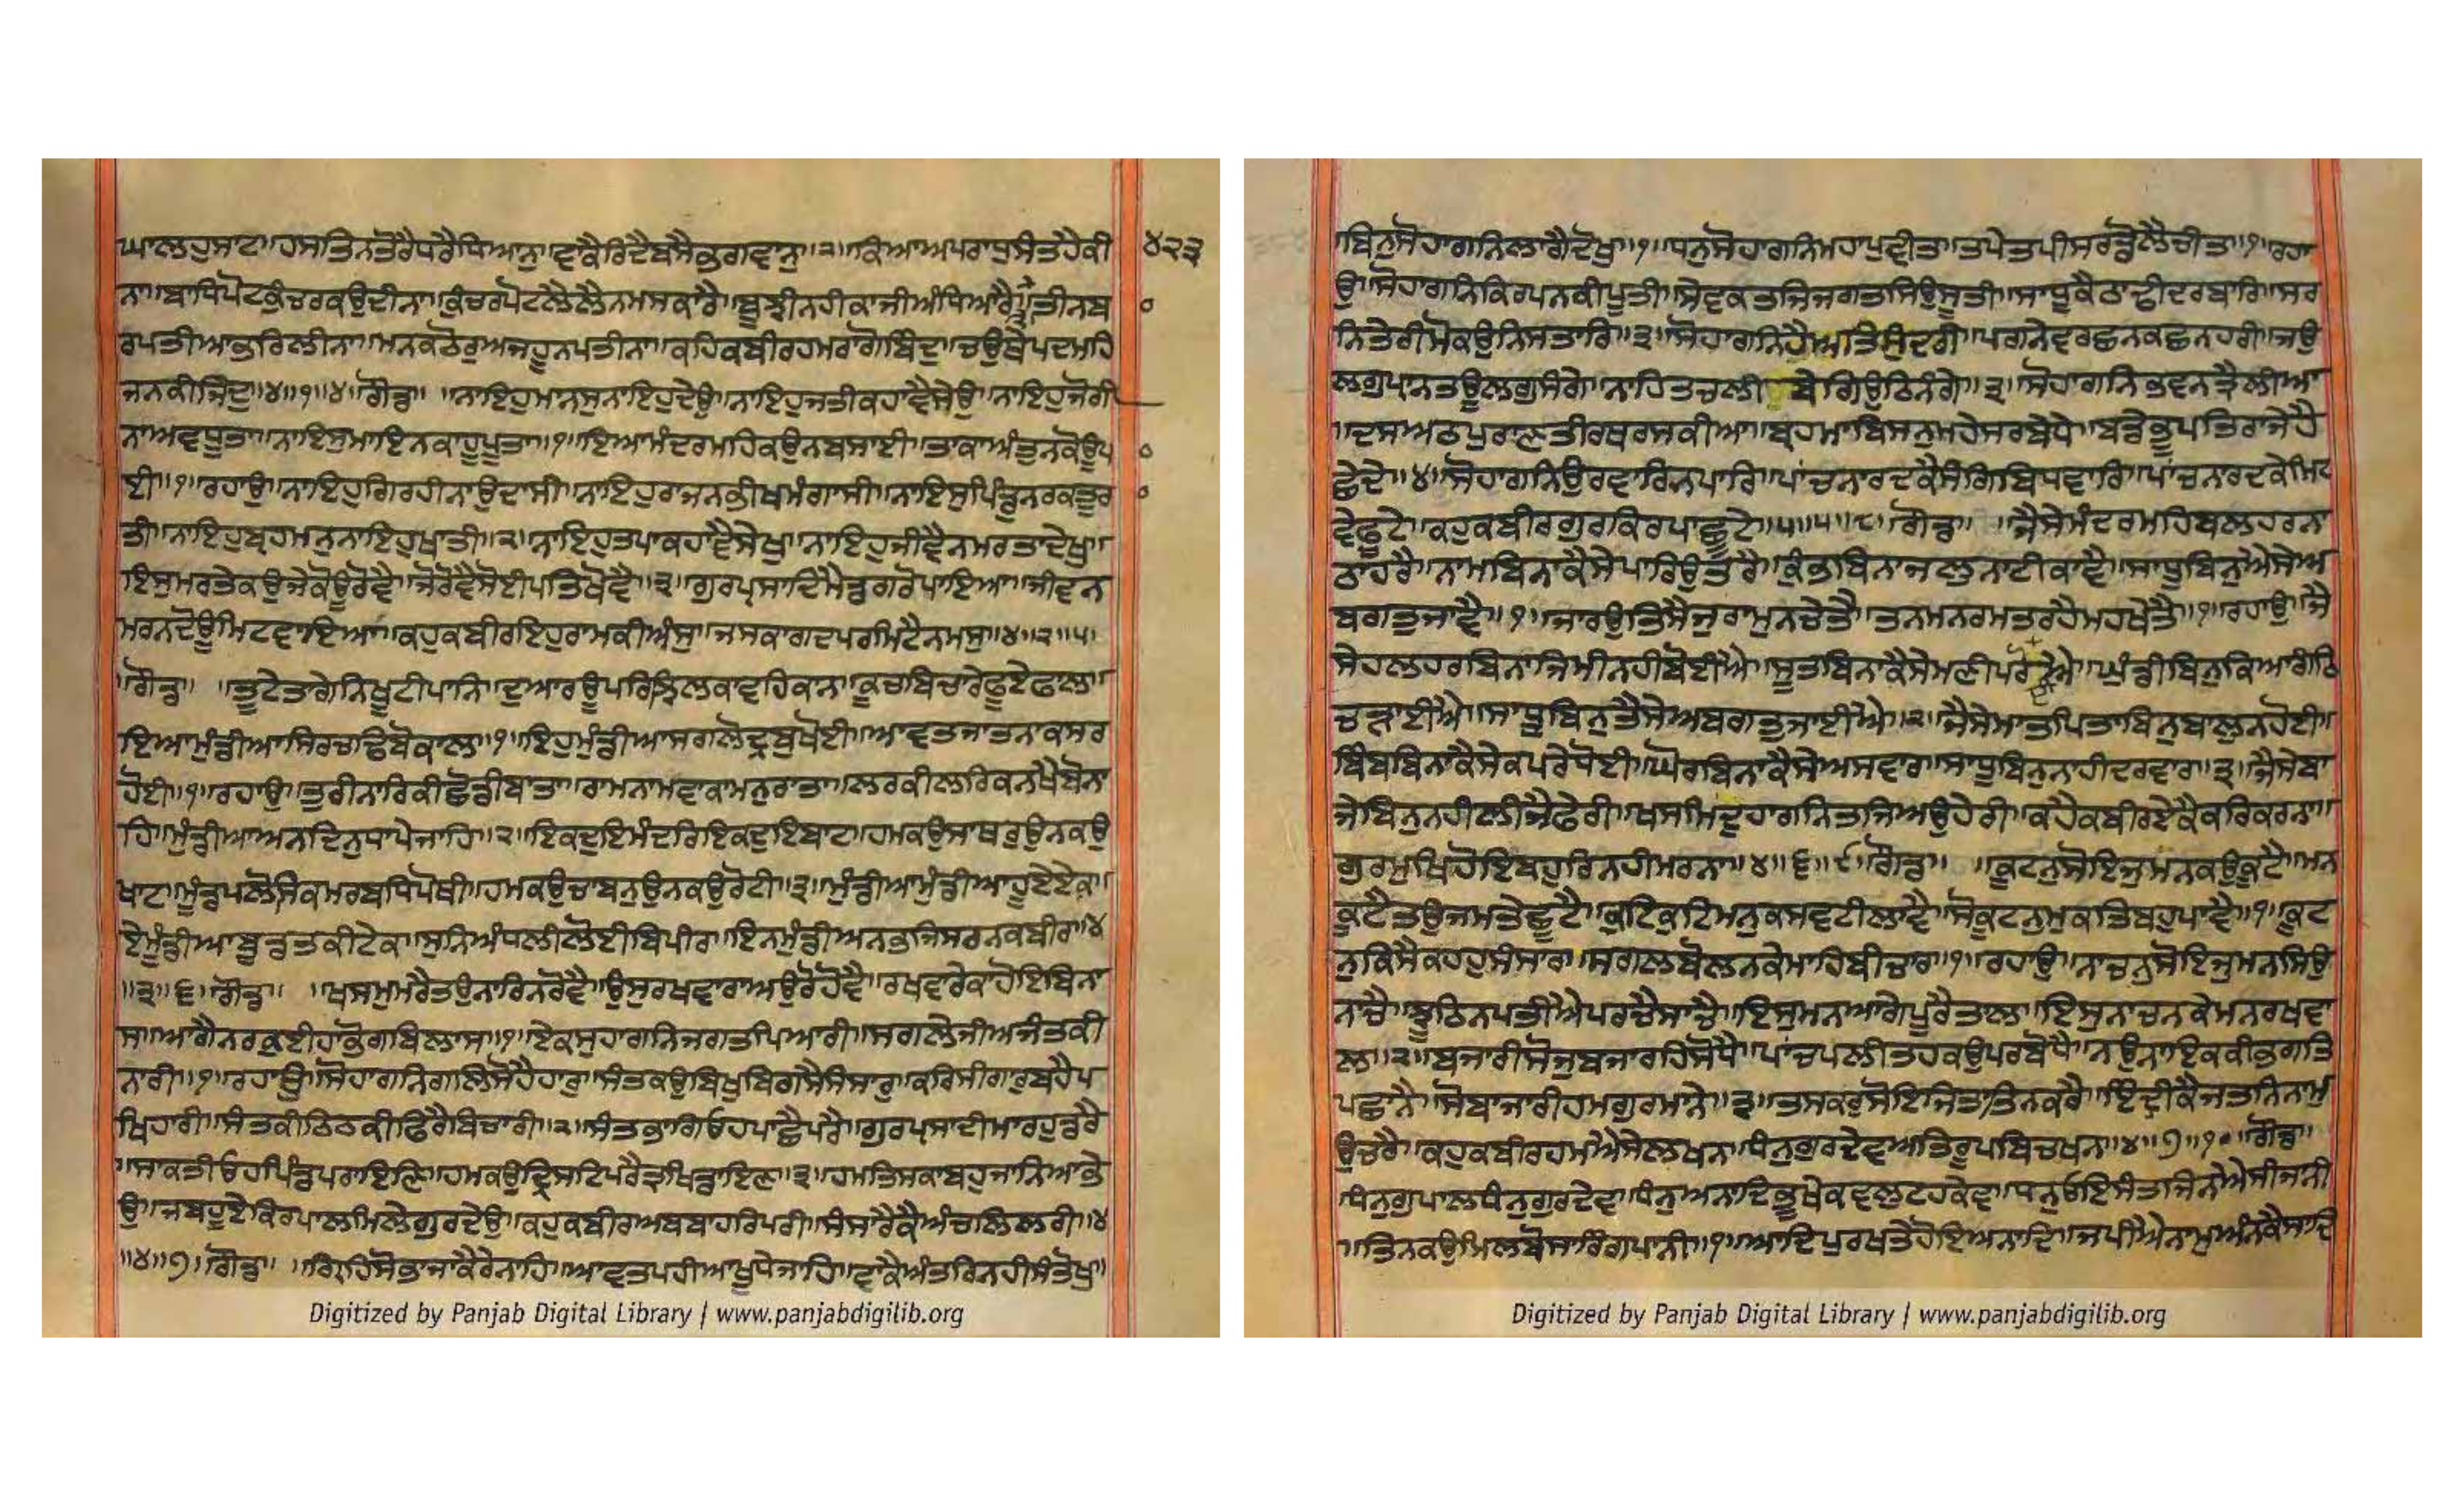 ਘਾਲਹੁਸਾਟਾ॥ਹਸਤਿਨਤੋਰੈਧਰੈਧਿਆਨੁ॥ਵਾਕੈਰਿਦੈਬਸੈਭਗਵਾਨੁ॥੨॥ਕਿਆਅਪਰਾਧੁਸੰਤਹੈਕੀ
੪੨੩
ਨਾ॥ਬਾਧਿਪੋਟਕੁੰਚਰਕਉਦੀਨਾ॥ਕੁੰਚਰਪੋਟਲੈਲੈਨਮਸਕਾਰੈ॥ਬੂਝੀਨਹੀਕਾਜੀਅੰਧਿਆਰੈ॥੩॥ਤੀਨਬ
ਰਪਤੀਆਭਰਿਲੀਨਾ॥ਮਨਕਠੋਰੁਅਜਹੂਨਪਤੀਨਾ॥ਕਹਿਕਬੀਰਹਮਰਾਗੋਬਿੰਦੁ॥ਚਉਥੇਪਦਮਹਿ
ਜਨਕੀਜਿੰਦੁ॥੪॥੧॥੪॥ਗੋਂਡ॥ ॥ਨਾਇਹੁਮਾਨਸੁਨਾਇਹੁਦੇਉ॥ਨਾਇਹੁਜਤੀਕਹਾਵੈਸੇਉ॥ਨਾਇਹੁਜੋਗੀ
ਨਾਅਵਧੂਤਾ॥ਨਾਇਸੁਮਾਇਨਕਾਹੂਪੂਤਾ॥੧॥ਇਆਮੰਦਰਮਹਿਕਉਨਬਸਾਈ॥ਤਾਕਾਅੰਤੁਨਕੋਊਪਾ
ਈ॥੧॥ਰਹਾਉ॥ਨਾਇਹੁਗਿਰਹੀਨਾਉਦਾਸੀ॥ਨਾਇਹੁਰਾਜਨਭੀਖਮੰਗਾਸੀ॥ਨਾਇਸੁਪਿੰਡੁਨਰਕਤੂਰਾ
ਤੀ॥ਨਾਇਹੁਬ੍ਰਹਮਨੁਨਾਇਹੁਖਾਤੀ॥੨॥ਨਾਇਹੁਤਪਾਕਹਾਵੈਸੇਖੁ॥ਨਾਇਹੁਜੀਵੈਨਮਰਤਾਦੇਖੁ॥
ਇਸੁਮਰਤੇਕਉਜੇਕੋਊਰੋਵੈ॥ਜੋਰੋਵੈਸੋਈਪਤਿਖੋਵੈ॥੩॥ਗੁਰਪ੍ਰਸਾਦਿਮੈਡਗਰੋਪਾਇਆ॥ਜੀਵਨ
ਮਰਨਦੋਊਮਿਟਵਾਇਆ॥ਕਹੁਕਬੀਰਇਹੁਰਾਮਕੀਅੰਸੁ॥ਜਸਕਾਗਦਪਰਮਿਟੈਨਮਸੁ॥੪॥੨॥੫॥
॥ਗੋਂਡ॥ ॥ਤੂਟੇਤਾਗੇਨਿਖੁਟੀਪਾਨਿ॥ਦੁਆਰਊਪਰਿਝਿਲਕਾਵਹਿਕਾਨ॥ਕੂਚਬਿਚਾਰੇਫੂਏਫਾਲ॥
ਇਆਮੁੰਡੀਆਸਿਰਚਢਿਬੋਕਾਲ॥੧॥ਇਹੁਮੁੰਡੀਆਸਗਲੋਦ੍ਰਬੁਖੋਈ॥ਆਵਤਜਾਤਨਾਕਸਰ
ਹੋਈ॥੧॥ਰਹਾਉ॥ਤੁਰੀਨਾਰਿਕੀਛੋਡੀਬਾਤਾ॥ਰਾਮਨਾਮਵਾਕਾਮਨੁਰਾਤਾ॥ਲਰਕੀਲਰਿਕਨਖੈਬੋਨਾ
ਹਿ॥ਮੁੰਡੀਆਅਨਦਿਨੁਧਾਪੇਜਾਹਿ॥੨॥ਇਕਦੁਇਮੰਦਰਿਇਕਦੁਇਬਾਟ॥ਹਮਕਉਸਾਥਰੁਉਨਕਉ
ਖਾਟ॥ਮੂੰਡਪਲੋਸਿਕਮਰਬਧਿਪੋਥੀ॥ਹਮਕਉਚਾਬਨੁਉਨਕਉਰੋਟੀ॥੩॥ਮੁੰਡੀਆਮੁੰਡੀਆਹੂਏਏਕ॥
ਏਮੁੰਡੀਆਬੂਡਤਕੀਟੇਕ॥ਸੁਨਿਅੰਧਲੀਲੋਈਬੇਪੀਰ॥ਇਨਮੁੰਡੀਅਨਭਜਿਸਰਨਕਬੀਰ॥੪
॥੩॥੬॥ਗੋਂਡ॥ ॥ਖਸਮੁਮਰੈਤਉਨਾਰਿਨਰੋਵੈ॥ਉਸੁਰਖਵਾਰਾਅਉਰੋਹੋਵੈ॥ਰਖਵਾਰੇਕਾਹੋਇਬਿਨਾ
ਸ॥ਆਗੈਨਰਕੁਈਹਾਭੋਗਬਿਲਾਸ॥੧॥ਏਕਸੁਹਾਗਨਿਜਗਤਪਿਆਰੀ॥ਸਗਲੇਜੀਅਜੰਤਕੀ
ਨਾਰੀ॥੧॥ਰਹਾਉ॥ਸੋਹਾਗਨਿਗਲਿਸੋਹੈਹਾਰੁ॥ਸੰਤਕਉਬਿਖੁਬਿਗਸੈਸੰਸਾਰੁ॥ਕਰਿਸੀਗਾਰੁਬਹੈਪ
ਖਿਹਾਰੀ॥ਸੰਤਕੀਠਿਠਕੀਫਿਰੈਬਿਚਾਰੀ॥੨॥ਸੰਤਭਾਗਿਓਹਪਾਛੈਪਰੈ॥ਗੁਰਪ੍ਰਸਾਦੀਮਾਰਹੁਡਰੈ
॥ਸਾਕਤੀਓਹਪਿੰਡਪਰਾਇਣਿ॥ਹਮਕਉਦ੍ਰਿਸਟਿਪਰੈਤ੍ਰਖਿਡਾਇਣ॥੩॥ਹਮਤਿਸਕਾਬਹੁਜਾਨਿਆਭੇ
ਉ॥ਜਬਹੂਏਕਿਰਪਾਲਮਿਲੇਗੁਰਦੇਉ॥ਕਹੁਕਬੀਰਅਬਬਾਹਰਿਪਰੀ॥ਸੰਸਾਰੈਕੈਅੰਚਲਿਲਰੀ॥੪
॥੪॥੭॥ਗੋਂਡ॥ ॥ਗ੍ਰਿਹਿਸੋਭਾਜਾਕੈਰੇਨਾਹਿ॥ਆਵਤਪਹੀਆਖੂਧੇਜਾਹਿ॥ਵਾਕੈਅੰਤਰਿਨਹੀਸੰਤੋਖੁ॥
॥ਬਿਨੁਸੋਹਾਗਨਿਲਾਗੈਦੋਖੁ॥੧॥ਧਨੁਸੋਹਾਗਨਿਮਹਾਪਵੀਤ॥ਤਪੇਤਪੀਸਰਡੋਲੈਚੀਤ॥੧॥ਰਹਾ
ਉ॥ਸੋਹਾਗਨਿਕਿਰਪਨਕੀਪੂਤੀ॥ਸੇਵਕਤਜਿਜਗਤਸਿਉਸੂਤੀ॥ਸਾਧੂਕੈਠਾਢੀਦਰਬਾਰਿ॥ਸਰ
ਨਿਤੇਰੀਮੋਕਉਨਿਸਤਾਰਿ॥੨॥ਸੋਹਾਗਨਿਹੈਅਤਿਸੁੰਦਰੀ॥ਪਗਨੇਵਰਛਨਕਛਨਹਰੀ॥ਜਉ
ਲਗੁਪ੍ਰਾਨਤਊਲਗੁਸੰਗੇ॥ਨਾਹਿਤਚਲੀ ਬੇਗਿਉਠਿਨੰਗੇ॥੩॥ਸੋਹਾਗਨਿਭਵਨਤ੍ਰੈਲੀਆ
॥ਦਸਅਠਪੁਰਾਣਤੀਰਥਰਸਕੀਆ॥ਬ੍ਰਹਮਾਬਿਸਨੁਮਹੇਸਰਬੇਧੇ॥ਬਡੇਭੂਪਤਿਰਾਜੇਹੈ
ਛੇਦੇ॥੪॥ਸੋਹਾਗਨਿਉਰਵਾਰਿਨਪਾਰਿ॥ਪਾਂਚਨਾਰਦਕੈਸੰਗਿਬਿਧਵਾਰਿ॥ਪਾਂਚਨਾਰਦਕੇਮਿਟ
ਵੇਫੂਟੇ॥ਕਹੁਕਬੀਰਗੁਰਕਿਰਪਾਛੂਟੇ॥੫॥੫॥੮॥ਗੋਂਡ॥ ॥ਜੈਸੇਮੰਦਰਮਹਿਬਲਹਰਨਾ
ਠਾਹਰੈ॥ਨਾਮਬਿਨਾਕੈਸੇਪਾਰਿਉਤਰੈ॥ਕੁੰਭਬਿਨਾਜਲੁਨਾਟੀਕਾਵੈ॥ਸਾਧੂਬਿਨੁਐਸੇਅ
ਬਗਤੁਜਾਵੈ॥੧॥ਜਾਰਉਤਿਸੈਜੁਰਾਮੁਨਚੇਤੈ॥ਤਨਮਨਰਮਤਰਹੈਮਹਖੇਤੈ॥੧॥ਰਹਾਉ॥ਜੈ
ਸੇਹਲਹਰਬਿਨਾਜਿਮੀਨਹੀਬੋਈਐ॥ਸੂਤਬਿਨਾਕੈਸੇਮਣੀਪਰੋਈਐ॥ਘੁੰਡੀਬਿਨੁਕਿਆਗੰਠਿ
ਚੜ੍ਹਾਈਐ॥ਸਾਧੂਬਿਨੁਤੈਸੇਅਬਗਤੁਜਾਈਐ॥੨॥ਜੈਸੇਮਾਤਪਿਤਾਬਿਨੁਬਾਲੁਨਹੋਈ॥
ਬਿੰਬਬਿਨਾਕੈਸੇਕਪਰੇਧੋਈ॥ਘੋਰਬਿਨਾਕੈਸੇਅਸਵਾਰ॥ਸਾਧੂਬਿਨੁਨਾਹੀਦਰਵਾਰ॥੩॥ਜੈਸੇਬਾ
ਜੇਬਿਨੁਨਹੀਲੀਜੈਫੇਰੀ॥ਖਸਮਿਦੁਹਾਗਨਿਤਜਿਅਉਹੇਰੀ॥ਕਹੈਕਬੀਰਏਕੈਕਰਿਕਰਨਾ॥
ਗੁਰਮੁਖਿਹੋਇਬਹੁਰਿਨਹੀਮਰਨਾ॥੪॥੬॥੯॥ਗੋਂਡ॥ ॥ਕੂਟਨੁਸੋਇਜੁਮਨਕਉਕੂਟੈ॥ਮਨ
ਕੂਟੈਤਉਜਮਤੇਛੂਟੈ॥ਕੁਟਿਕੁਟਿਮਨੁਕਸਵਟੀਲਾਵੈ॥ਸੋਕੂਟਨੁਮੁਕਤਿਬਹੁਪਾਵੈ॥੧॥ਕੂਟ
ਨੁਕਿਸੈਕਹਹੁਸੰਸਾਰ॥ਸਗਲਬੋਲਨਕੇਮਾਹਿਬੀਚਾਰ॥੧॥ਰਹਾਉ॥ਨਾਚਨੁਸੋਇਜੁਮਨਸਿਉ
ਨਾਚੈ॥ਝੂਠਿਨਪਤੀਐਪਰਚੈਸਾਚੈ॥ਇਸੁਮਨਆਗੇਪੂਰੈਤਾਲ॥ਇਸੁਨਾਚਨਕੇਮਨਰਖਵਾ
ਲ॥੨॥ਬਜਾਰੀਸੋਜੁਬਜਾਰਹਿਸੋਧੈ॥ਪਾਂਚਪਲੀਤਹਕਉਪਰਬੋਧੈ॥ਨਉਨਾਇਕਕੀਭਗਤਿ
ਪਛਾਨੈ॥ਸੋਬਾਜਾਰੀਹਮਗੁਰਮਾਨੇ॥੩॥ਤਸਕਰੁਸੋਇਜਿਤਾਤਿਨਕਰੈ॥ਇੰਦ੍ਰੀਕੈਜਤਨਿਨਾਮੁ
ਉਚਰੈ॥ਕਹੁਕਬੀਰਹਮਐਸੇਲਖਨ॥ਧੰਨੁਗੁਰਦੇਵਅਤਿਰੂਪਬਿਚਖਨ॥੪॥੭॥੧੦॥ਗੋਂਡ॥
॥ਧੰਨੁਗੁਪਾਲਧੰਨੁਗੁਰਦੇਵ॥ਧੰਨੁਅਨਾਦਿਭੂਖੇਕਵਲੁਟਹਕੇਵ॥ਧਨੁਓਇਸੰਤਜਿਨਐਸੀਜਾਨੀ
॥ਤਿਨਕਉਮਿਲਬੋਸਾਰਿੰਗਪਾਨੀ॥੧॥ਆਦਿਪੁਰਖਤੇਹੋਇਅਨਾਦਿ॥ਜਪੀਐਨਾਮੁਅੰਨਕੈਸਾਦਿ
Digitized by Panjab Digital Library | www.panjabdigilib.org
Digitized by Panjab Digital Library | www.panjabdigilib.org